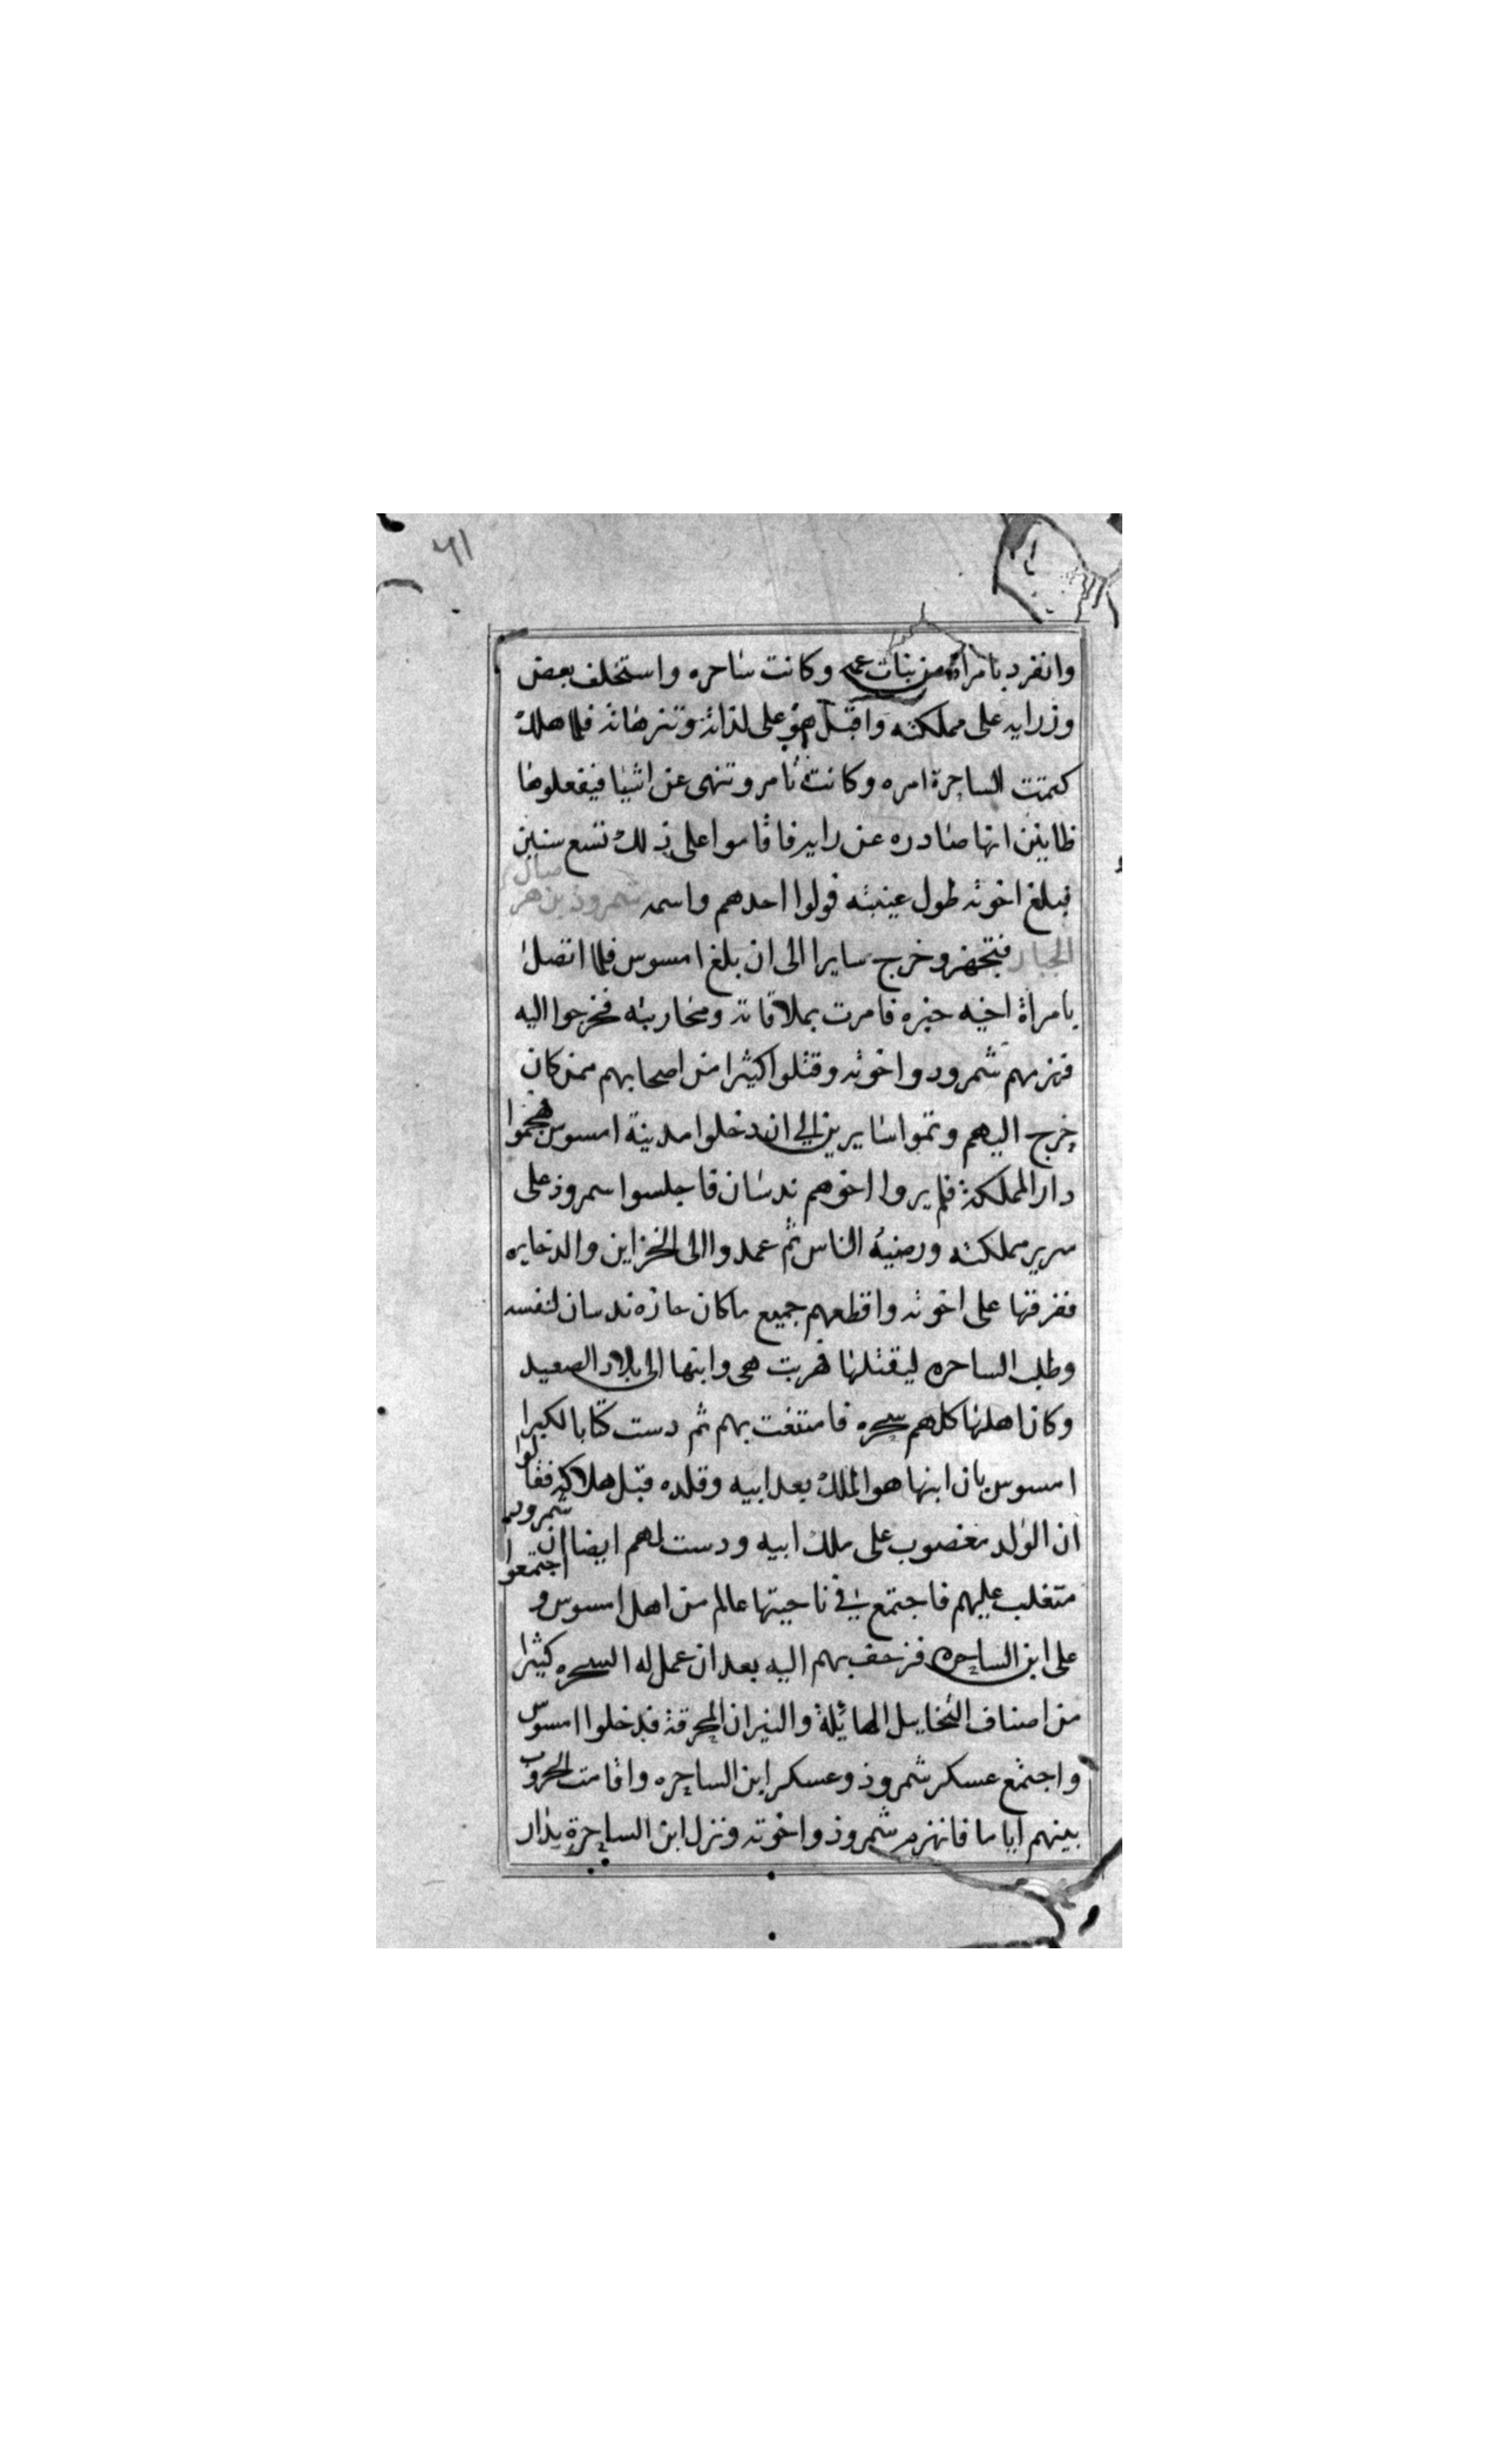 ٦١
وانفرد بامراة من بنات عمه وكانت ساحره واستخلف بعض
وزرايه على مملكته واقبل هو على لذاته وتنزهاته فلما هلك
كتمت الساحرة امره وكانت تامر وتنهى عن اشيا فيفعلوها
ظانين انها صادره عن رايه فاقاموا على ذلك تسع سنين
فبلغ اخوته طول غيبته فولوا احدهم واسمه شمرود بن هرصال
الجبار فتجهز وخرج سايرا الى ان بلغ امسوس فلما اتصل
بامراة اخيه خبره فامرت بملاقاته ومحاربته فخرجوا اليه
فهزمهم شمرود واخوته وقتلوا كثيرا من اصحابهم ممن كان
خرج اليهم وتموا سايرين الى ان دخلوا مدينة امسوس فهجموا
دار المملكة فلم يروا اخوهم ندسان فاجلسوا سمرود على
سرير مملكته ورضيه الناس ثم عمدوا الى الخزاين والدخايره
ففرقها على اخوته واقطعهم جميع ما كان حازه ندسان لنفسه
وطلب الساحره ليقتلها فهربت هى وابنها الى بلاد الصعيد
وكان اهلها كلهم سحره فامتنعت بهم ثم دست كتابا لكبرا
امسوس بان ابنها هو الملك بعد ابيه وقلده قبل هلاكه فقالوا
ان الولد مغصوب على ملك ابيه ودست لهم ايضا ان شمرود
متغلب عليهم فاجتمع فى ناحيتها عالم من اهل امسوس واجتمعوا
على ابن الساحره فزحف بهم اليه بعد ان عمل له السحره كثيرا
من اصناف التخايل الهائلة والنيران المحرقة فدخلوا امسوس
واجتمع عسكر شمرود وعسكر ابن الساحره واقامت الحروب
بينهم اياما فانهزم شمرود واخوته ونزل ابن الساحرة بدار